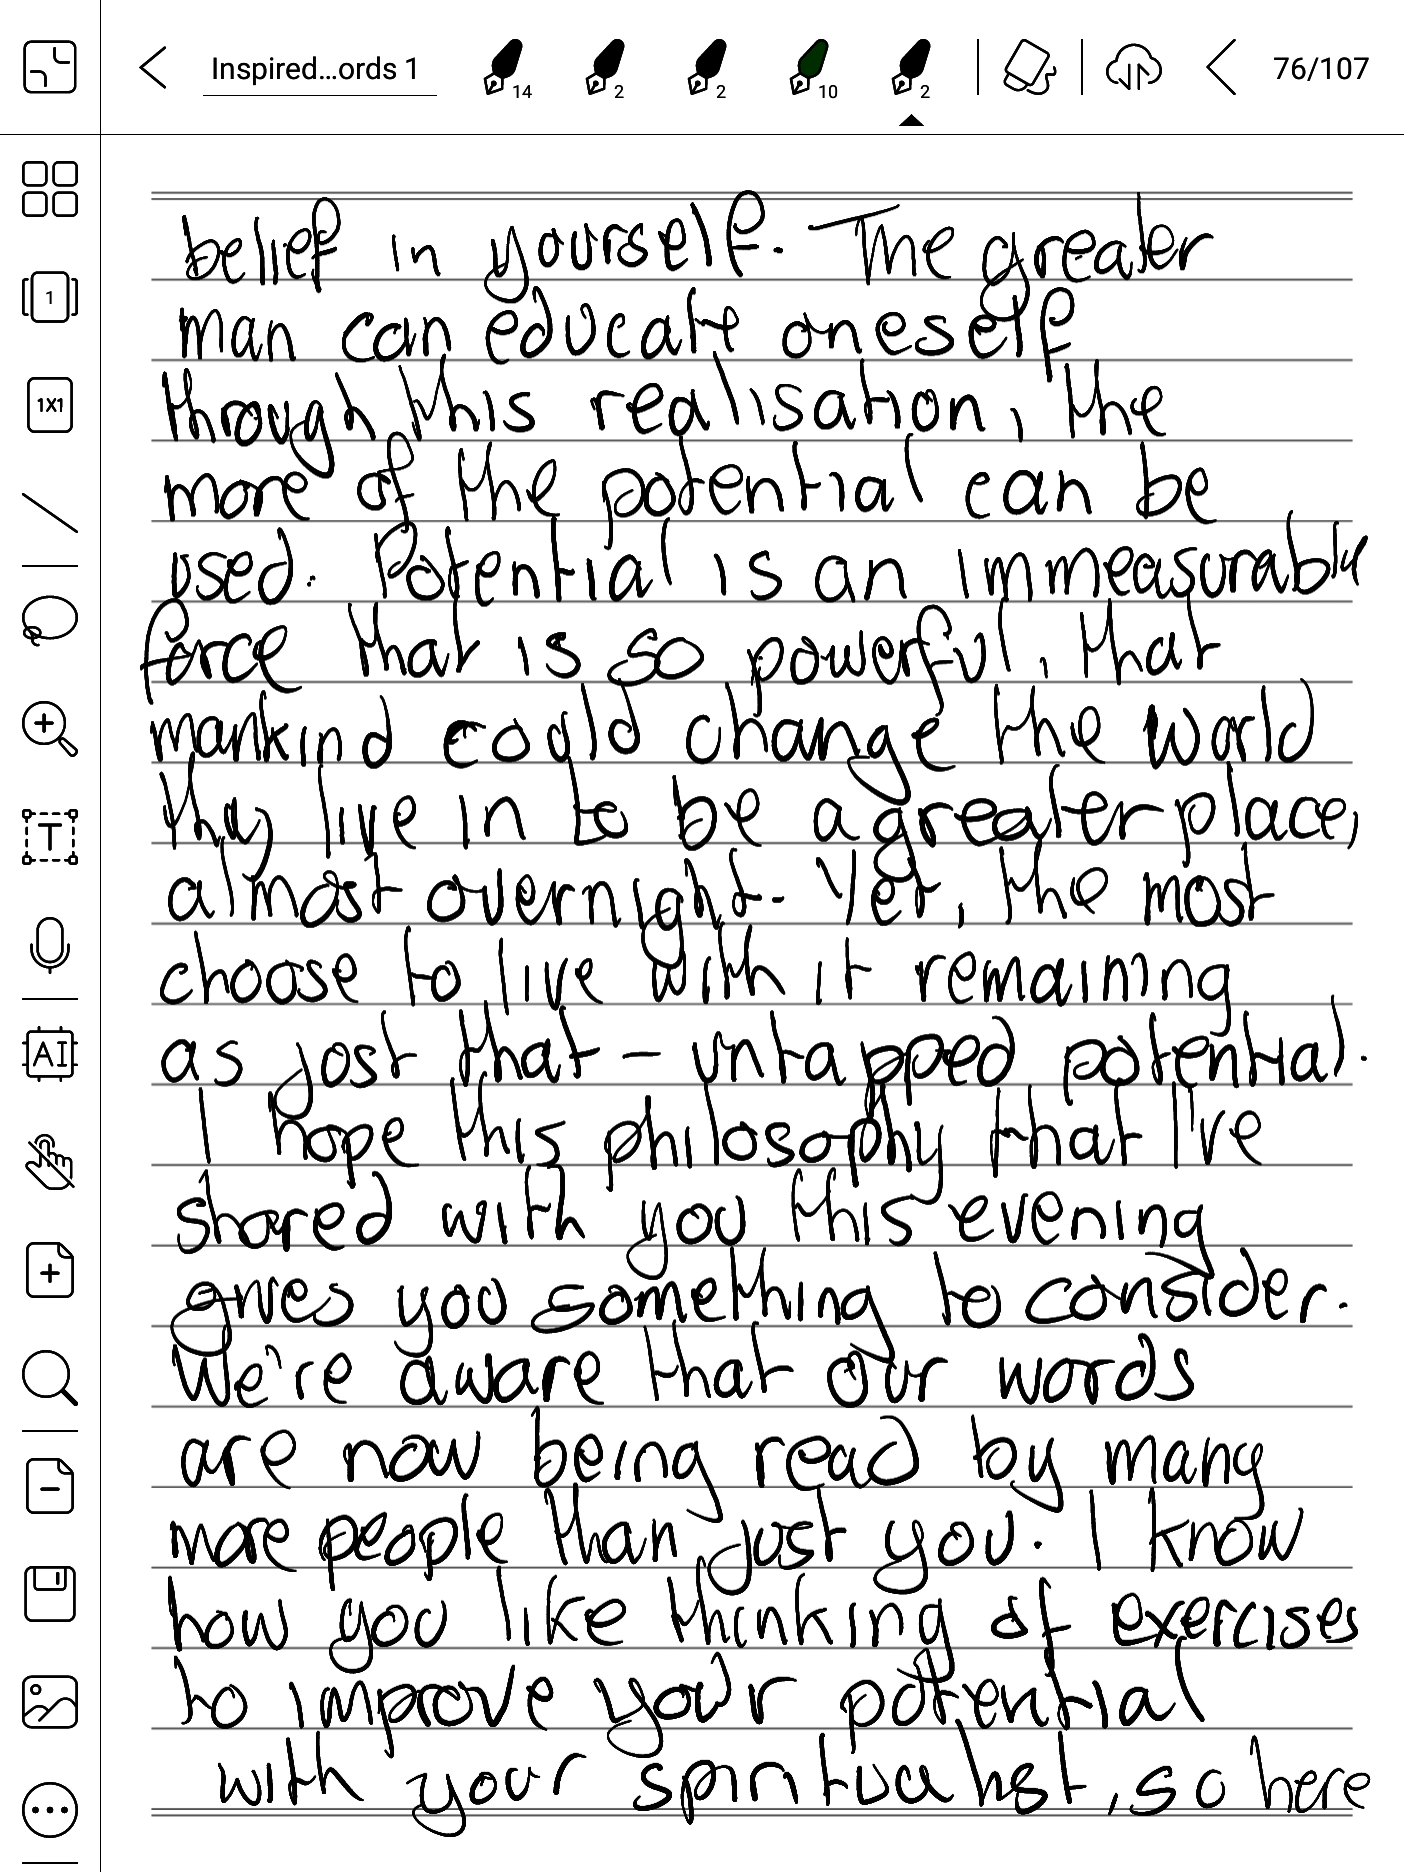 Inspired...ords 1
14
2
2
10
2
76/107
1
1X1
T
AI
belief in yourself. The greater
man can educate oneself
through this realisation, the
more of the potential can be
used. Potential is an immeasurable
force that is so powerful, that
mankind could change the world
they live in to be a greater place,
almost overnight. Yet, the most
choose to live with it remaining
as just that - untapped potential.
I hope this philosophy that I've
shared with you this evening
gives you something to consider.
We're aware that our words
are now being read by many
more people than just you. I know
how you like thinking of exercises
to improve your potential
with your spiritualist, so here